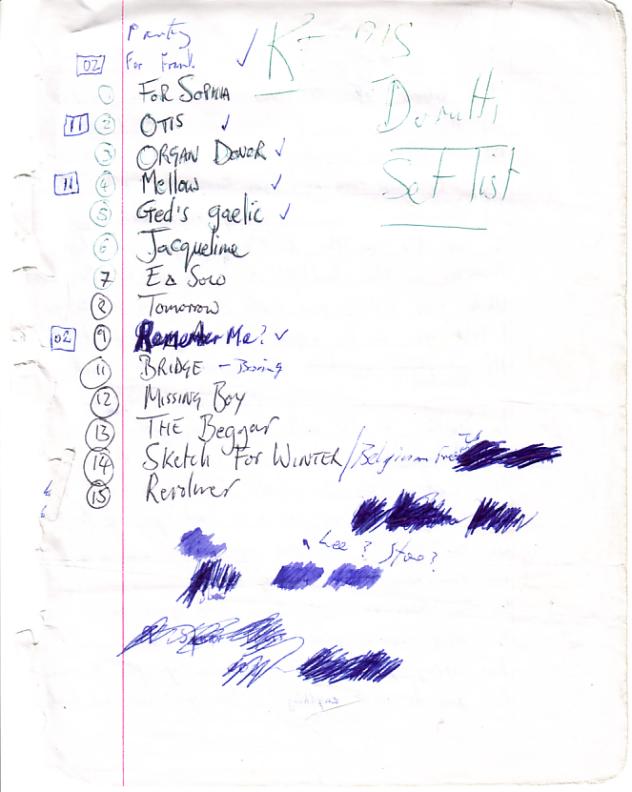 Party
02 For Frank ✓
Durutti
Set List
1 FOR SOPHIA
11 2 OTIS ✓
3 ORGAN DONOR ✓
11 4 Mellow ✓
5 Ged's gaelic ✓
6 Jacqueline
7 Ed Solo
8 Tomorrow
02 9 Remember Me? ✓
11 BRIDGE - Boring
12 MISSING BOY
13 THE Beggar
14 SKetch For WINTER / Belgium
15 Revolver
Lee ? Stoo ?